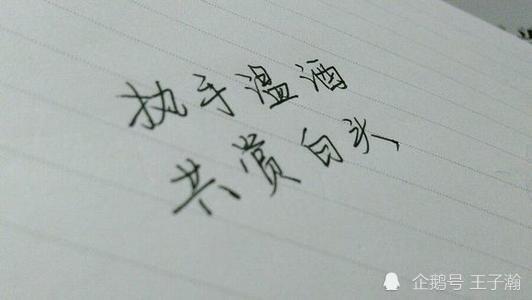 执手温酒
共赏白头
企鹅号 王子瀚